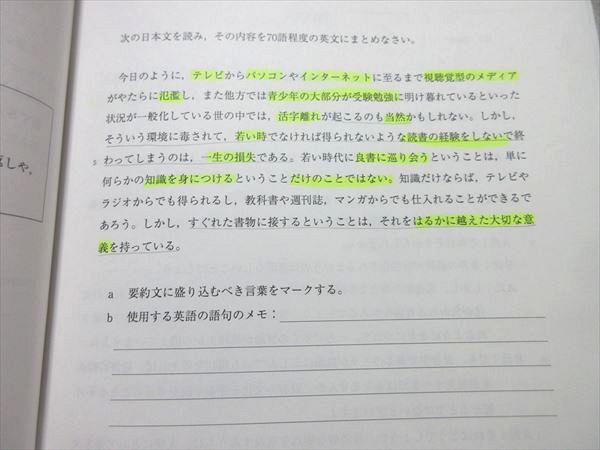 次の日本文を読み，その内容を70語程度の英文にまとめなさい。
今日のように，テレビからパソコンやインターネットに至るまで視聴覚型のメディア
がやたらに氾濫し，また他方では青少年の大部分が受験勉強に明け暮れているといった
状況が一般化している世の中では，活字離れが起こるのも当然かもしれない。しかし，
そういう環境に毒されて，若い時でなければ得られないような読書の経験をしないで終
5 わってしまうのは，一生の損失である。若い時代に良書に巡り会うということは，単に
何らかの知識を身につけるということだけのことではない。知識だけならば，テレビや
ラジオからでも得られるし，教科書や週刊誌，マンガからでも仕入れることができるで
あろう。しかし，すぐれた書物に接するということは，それをはるかに越えた大切な意
義を持っている。
a 要約文に盛り込むべき言葉をマークする。
b 使用する英語の語句のメモ：